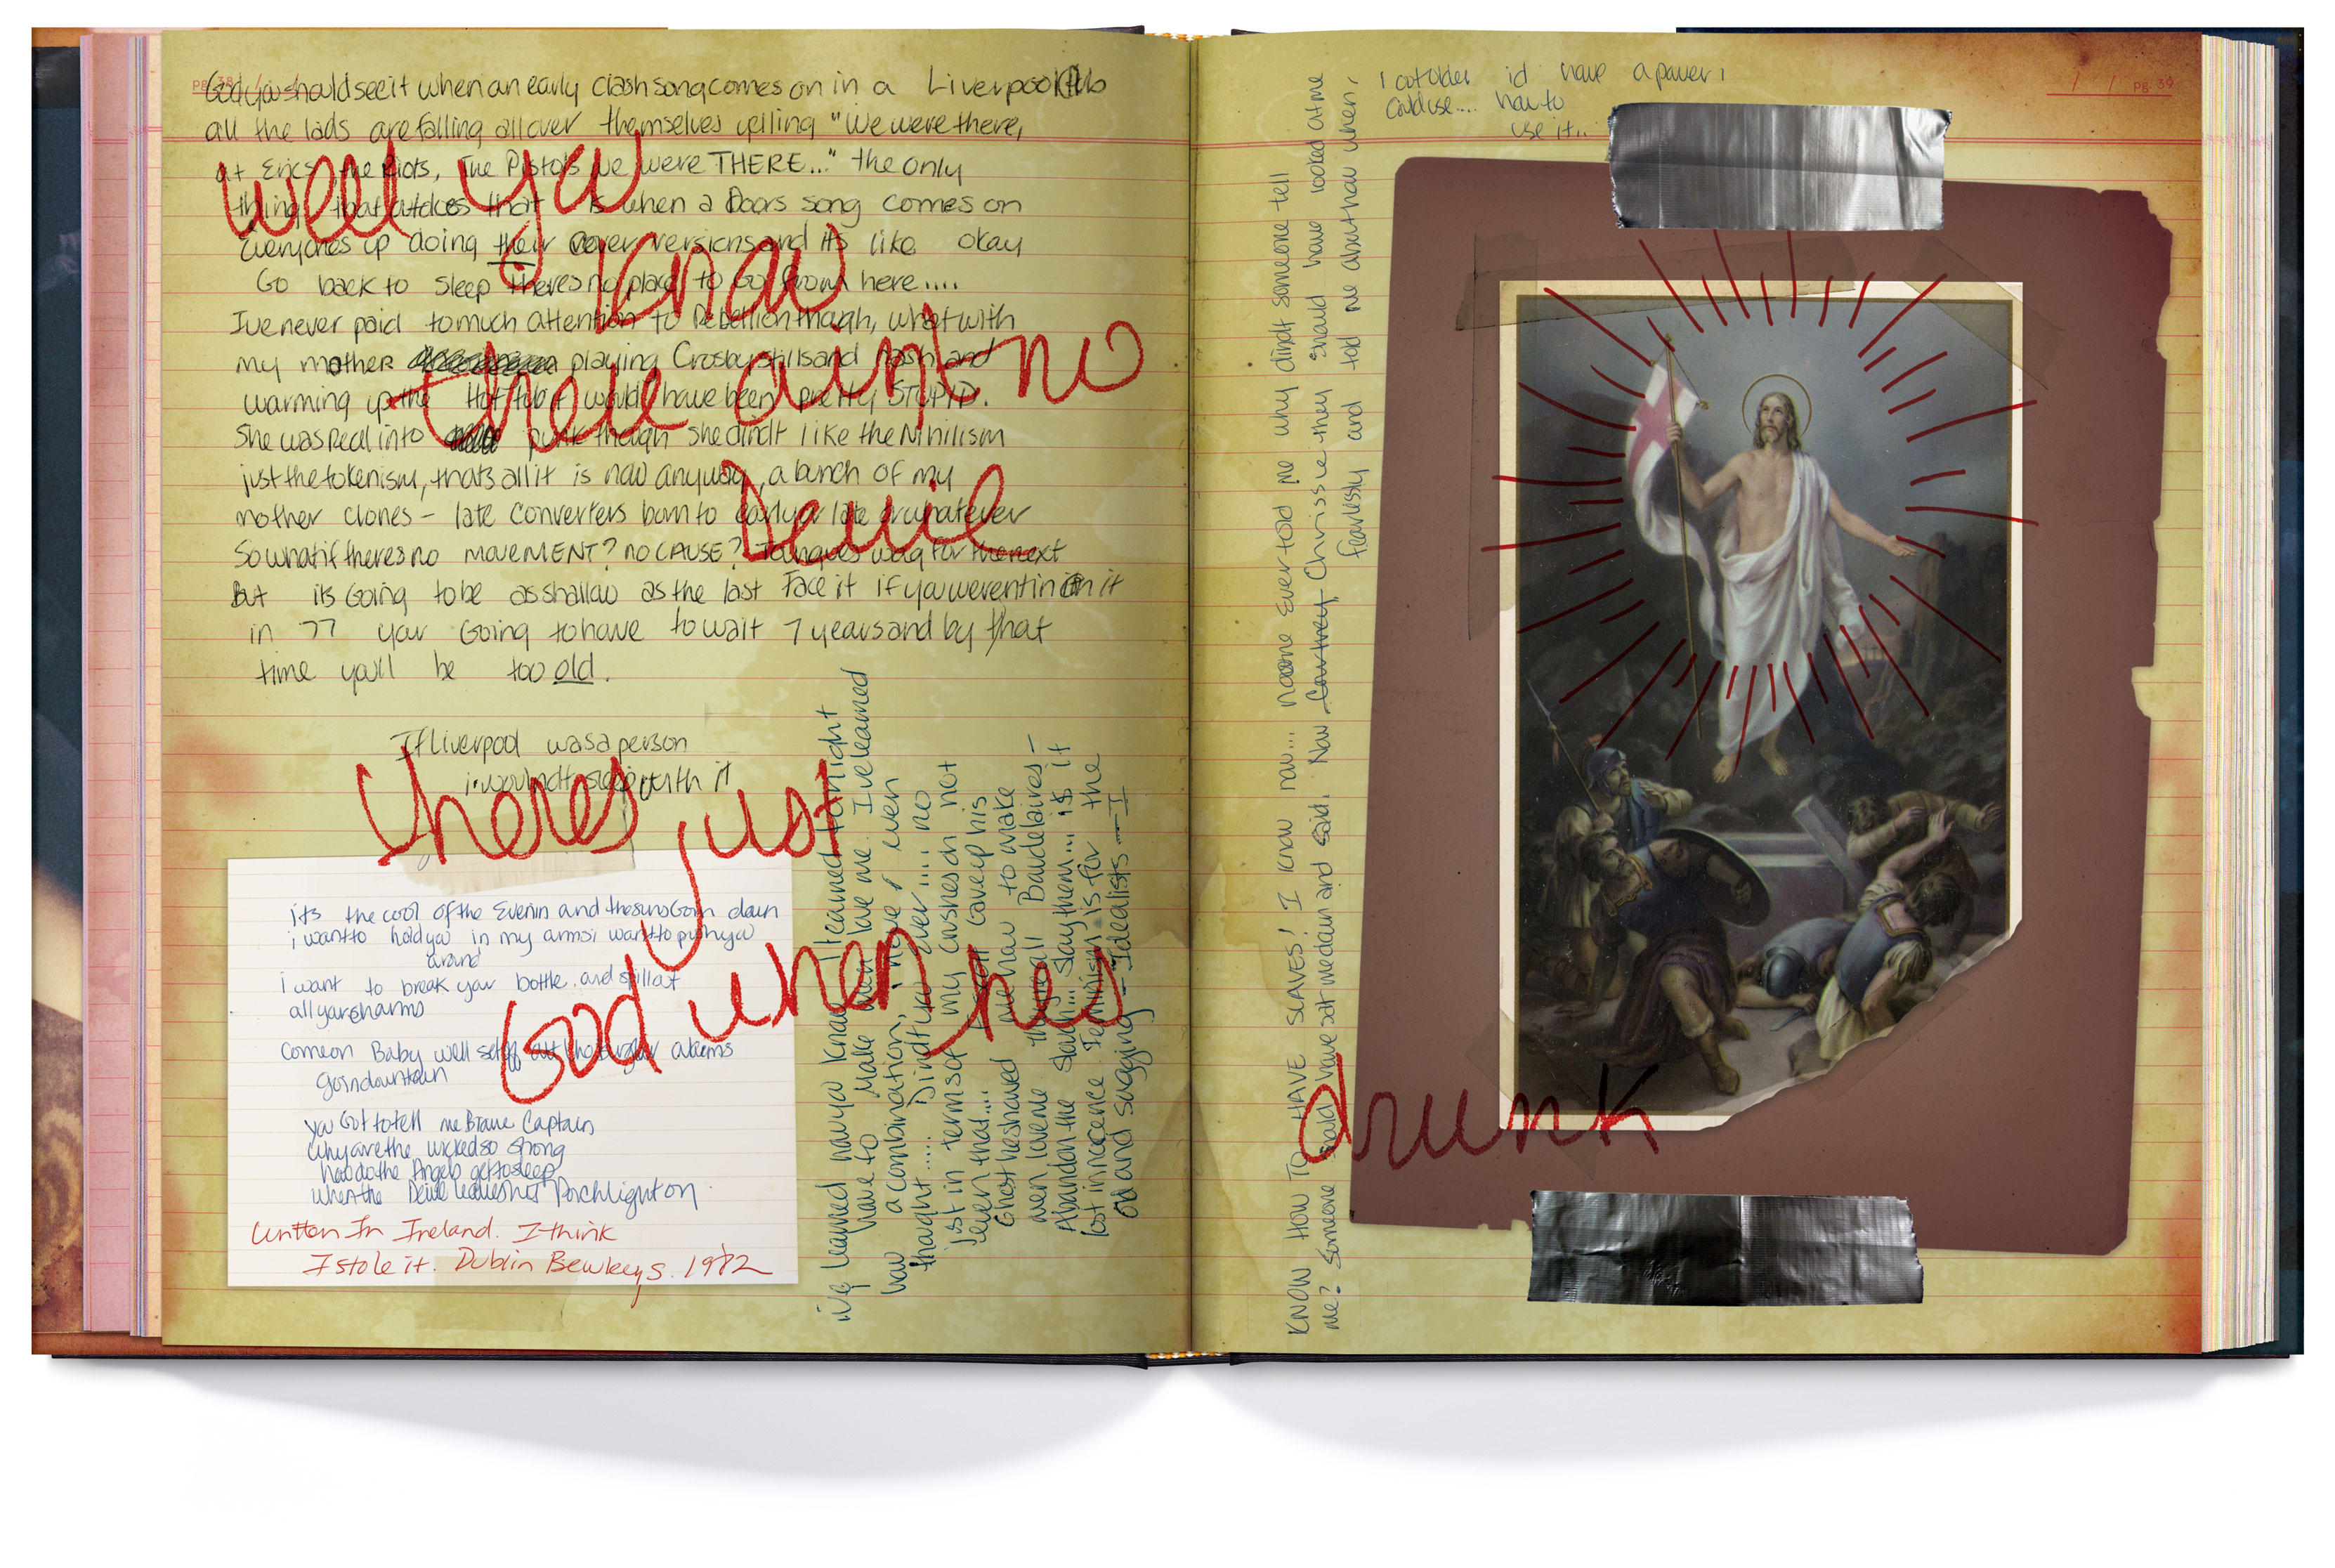 pg. 38
God you should see it when an early Clash song comes on in a Liverpool
all the lads are falling all over themselves yelling "We were there,
at Erics the Riots, The Pistols we were THERE..." the only
thing that outdoes that is when a Doors song comes on
Everyones up doing their cover versions and its like okay
Go back to sleep theres no place to Go from here....
Ive never paid to much attention to Rebellion though, what with
my mother playing Crosby stills and nash and
warming up the Hot tub it would have been pretty STUPID.
She was Real into punk though she dindt like the Nihilism
just the tokenism, thats all it is now anyway, a bunch of my
mother clones - late converters born to early or late or whatever
So what if theres no movEMENT? no CAUSE? Tongues wag for the next
But its Going to be as shallow as the last Face it if you werent in on it
in 77 your Going to have to wait 7 years and by that
time youll be too old.
If Liverpool was a person
i wouldt sleep with it
well you
know
there aint no
Devil
theres just
God when hes
drunk
its the cool of the Evenin and the suns Goin down
i want to hold you in my arms i want to push you
around
i want to break your bottle and spill out
all your charms
come on Baby well set off all the burglar alarms
goin downtown
you Got to tell me Brave Captain
why are the wicked so strong
how do the Angels get to sleep
when the Devil leaves his Porchlight on.
Written In Ireland. I think
I stole it. Dublin Bewleys. 1982
ive learned now you know I learned tonight
have to make men love me. Ive learned
how a combination, i never even
thought..... Dindt ever ever..... no
just in terms of my crushes on not
even that.... Ghost Gave up his
Ghost he shaved and how to make
men levene them all Baudelaires -
Abandon the Slay... Slay them... is it
lost innocence Feminism is for the
Old and sagging - Idealists - I
KNOW HOW TO HAVE SLAVES! I know now... noone Ever told me why dindt someone tell
me? Someone should have sat me down and said. Now Courtney Chrissie they should have looked at me
fearlessly and told me about how when,
i got older id have a power i
could use.... how to
use it..
pg. 39